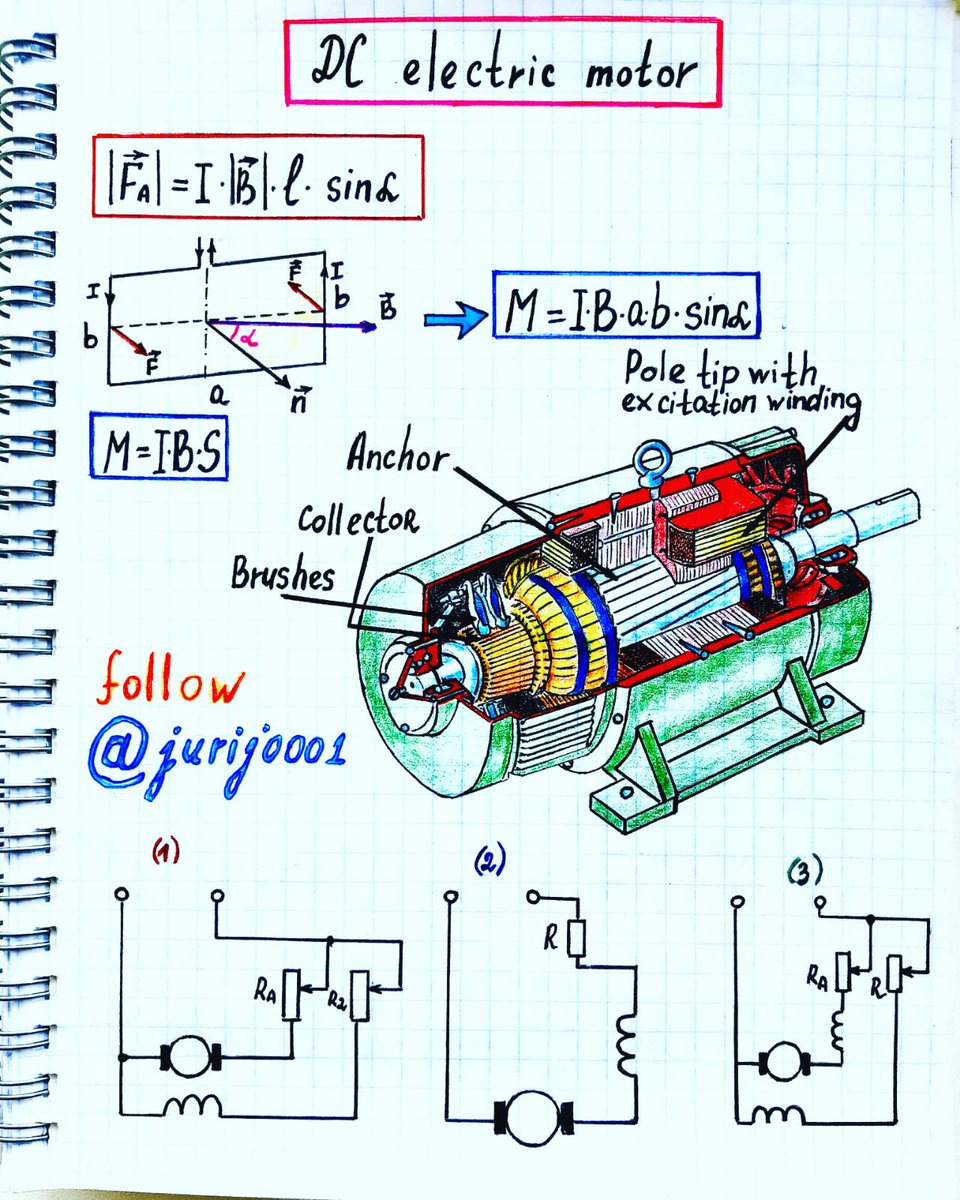 DC electric motor
|F⃗A| = I·|B⃗|·l· sinα
I
b
F⃗
a
α
n⃗
F⃗
I
b
B⃗
M = I·B·a·b·sinα
M=I·B·S
Pole tip with
excitation winding
Anchor
Collector
Brushes
follow
@jurij0001
(1)
RA
R2
(2)
R
(3)
RA
R